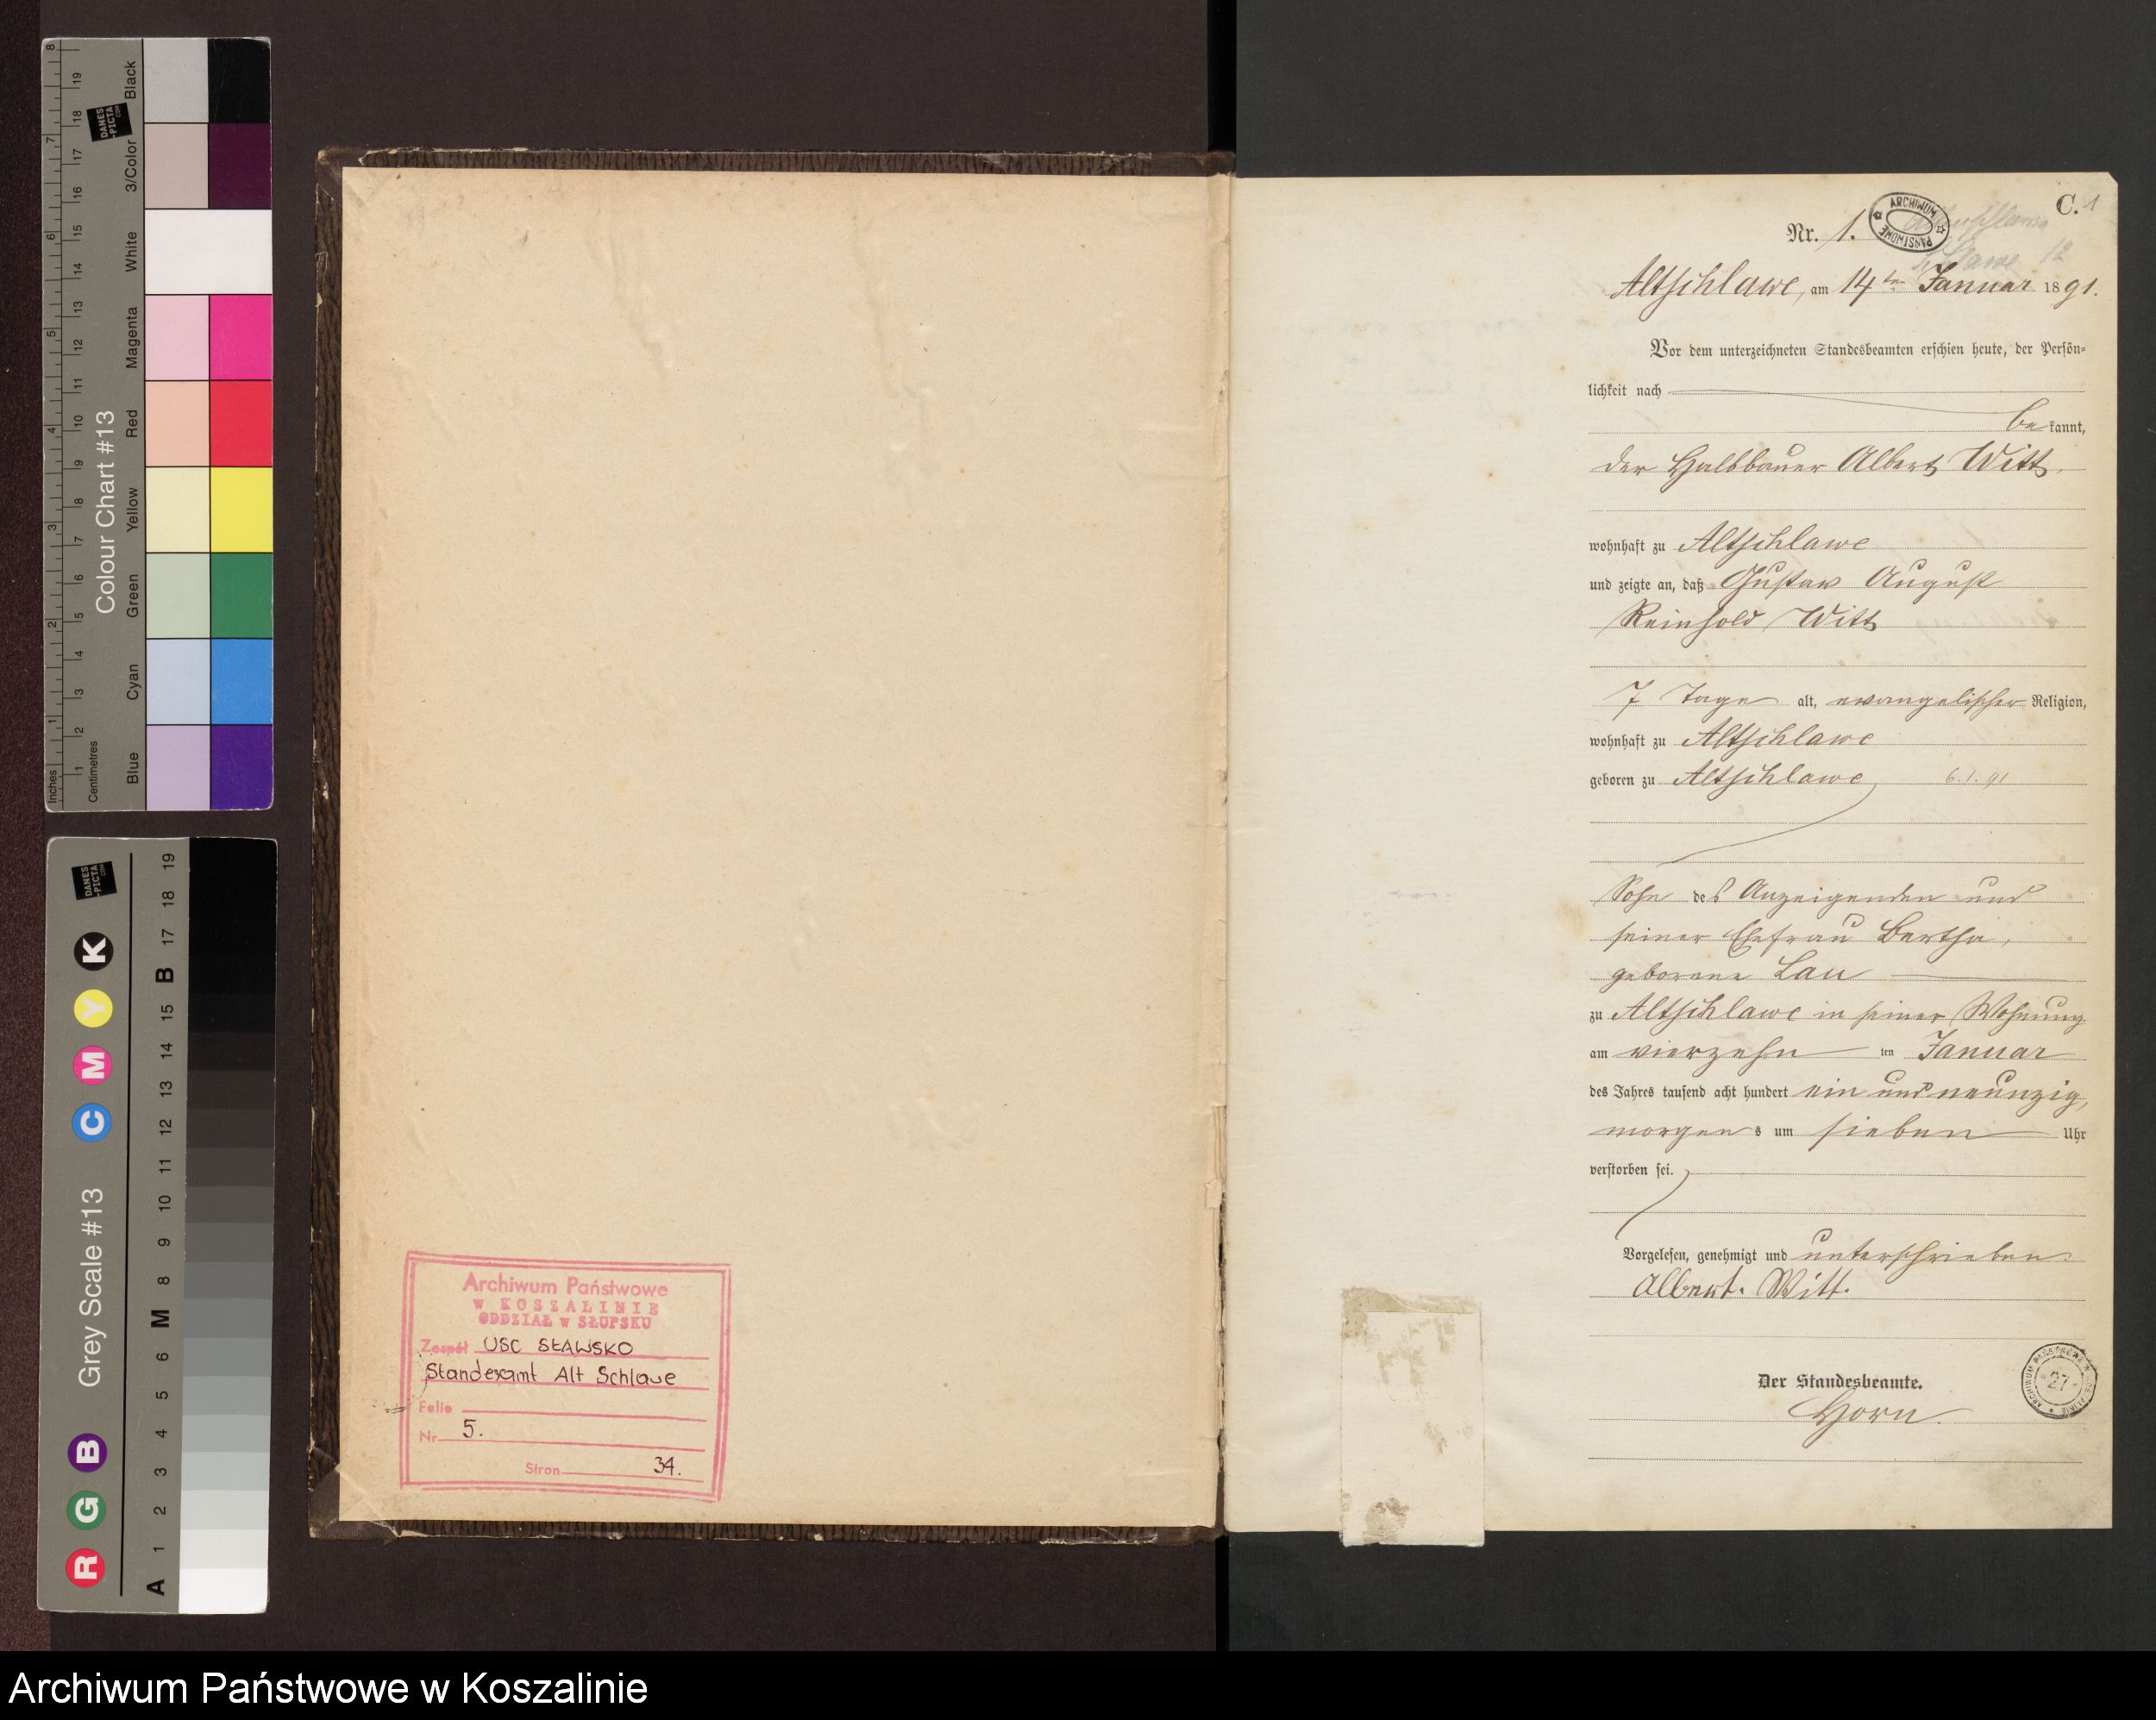 Colour Chart #13
Blue
Cyan
Green
Yellow
Red
Magenta
White
3/Color
Black
Inches
Centimetres
DANES
-PICTA
.COM
Grey Scale #13
R G B C M Y K
A 1 2 3 4 5 6 M 8 9 10 11 12 13 14 15 B 17 18 19
Archiwum Państwowe
W KOSZALINIE
ODDZIAŁ w SŁUPSKU
Zespół USC SŁAWSKO
Standesamt Alt Schlawe
Folio
Nr 5.
Stron 34.
C. 1
Nr. 1.
ARCHIWUM PAŃSTWOWE
Altschlawe, am 14ten Januar 1891.
Vor dem unterzeichneten Standesbeamten erschien heute, der Persön-
lichkeit nach
bekannt,
der Halbbauer Albert Witt,
wohnhaft zu Altschlawe
und zeigte an, daß Gustav August
Reinhold Witt
7 Tage alt, evangelischer Religion,
wohnhaft zu Altschlawe
geboren zu Altschlawe 6.1.91
Sohn des Anzeigenden und
seiner Ehefrau Bertha,
geborene Lau
zu Altschlawe in seiner Wohnung
am vierzehn ten Januar
des Jahres tausend acht hundert ein und neunzig,
morgens um sieben Uhr
verstorben sei.
Vorgelesen, genehmigt und unterschrieben.
Albert. Witt.
Der Standesbeamte.
Horn.
27
Archiwum Państwowe w Koszalinie